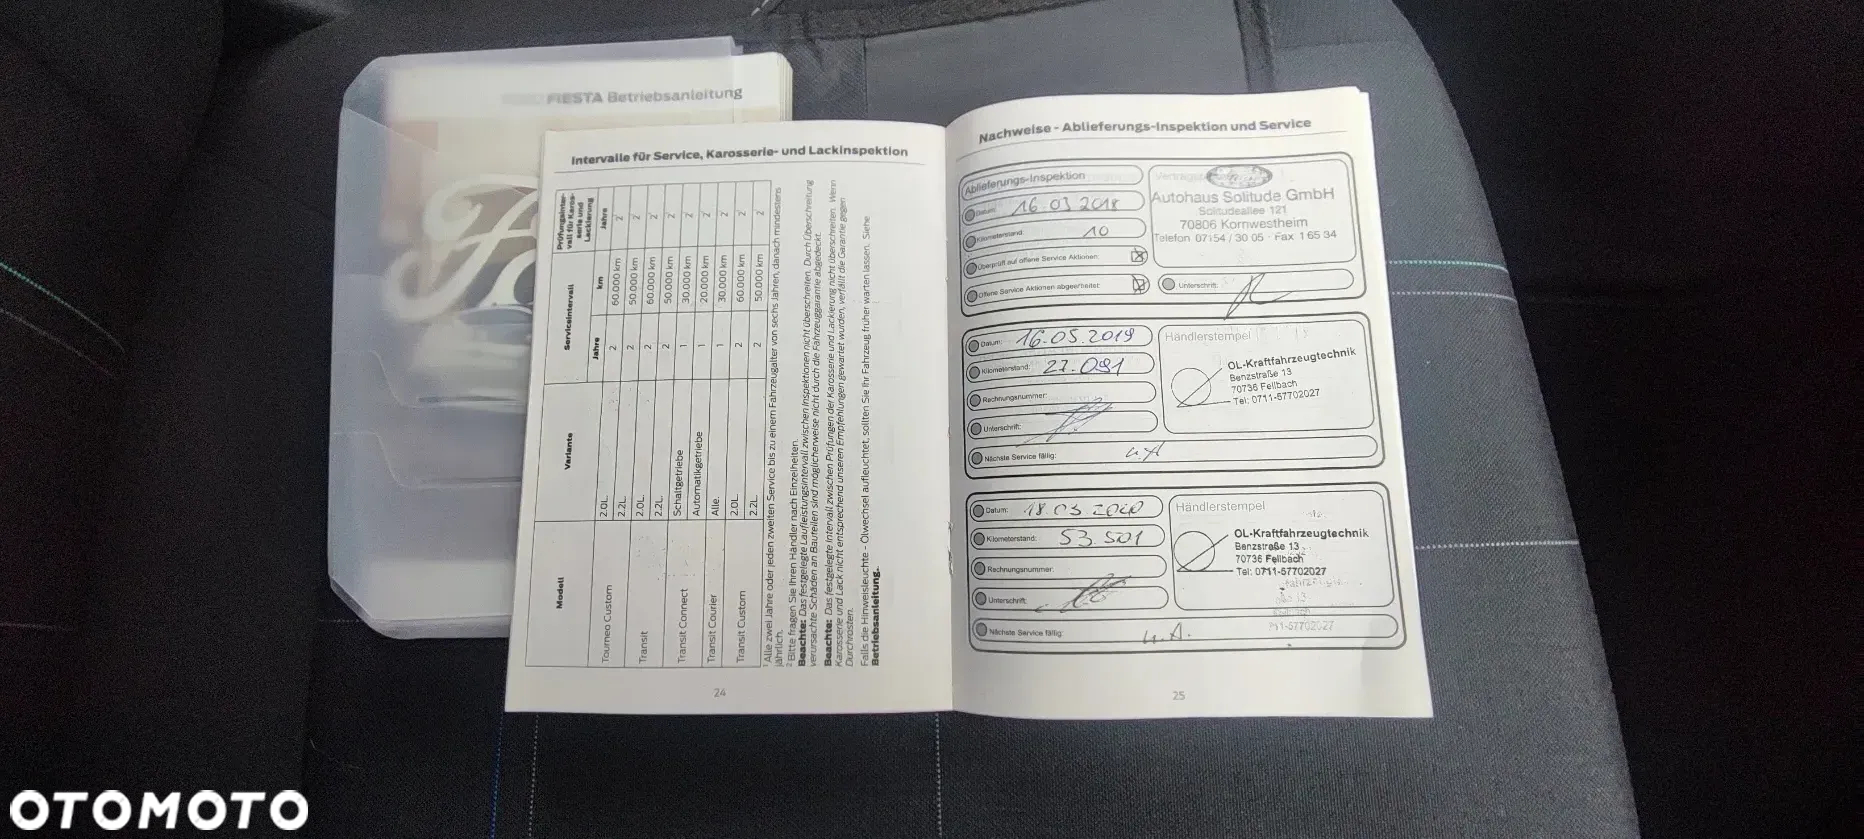 FIESTA Betriebsanleitung
Intervalle für Service, Karosserie- und Lackinspektion
Modell
Variante
Serviceintervall
Prüfungsinter-
vall für Karos-
serie und
Lackierung
Jahre
km
Jahre
Tourneo Custom
2.0L.
2
60.000 km
2
2.2L.
2
50.000 km
2
Transit
2.0L.
2
60.000 km
2
2.2L.
2
50.000 km
2
Transit Connect
Schaltgetriebe
1
30.000 km
2
Automatikgetriebe
1
20.000 km
2
Transit Courier
Alle.
1
30.000 km
2
Transit Custom
2.0L.
2
60.000 km
2
2.2L.
2
50.000 km
2
1 Alle zwei Jahre oder jeden zweiten Service bis zu einem Fahrzeugalter von sechs Jahren, danach mindestens
jährlich.
2 Bitte fragen Sie Ihren Händler nach Einzelheiten.
Beachte: Das festgelegte Laufleistungsintervall zwischen Inspektionen nicht überschreiten. Durch Überschreitung
verursachte Schäden an Bauteilen sind möglicherweise nicht durch die Fahrzeuggarantie abgedeckt.
Beachte: Das festgelegte Intervall zwischen Prüfungen der Karosserie und Lackierung nicht überschreiten. Wenn
Karosserie und Lack nicht entsprechend unseren Empfehlungen gewartet wurden, verfällt die Garantie gegen
Durchrosten.
Falls die Hinweisleuchte - Ölwechsel aufleuchtet, sollten Sie Ihr Fahrzeug früher warten lassen. Siehe
Betriebsanleitung.
24
Nachweise - Ablieferungs-Inspektion und Service
Ablieferungs-Inspektion
Datum: 16.03 2018
Kilometerstand: 10
Überprüft auf offene Service Aktionen:
Offene Service Aktionen abgearbeitet:
Autohaus Solitude GmbH
Solitudeallee 121
70806 Kornwestheim
Telefon 07154 / 30 05 - Fax 1 65 34
Unterschrift:
Datum: 16.05.2019
Kilometerstand: 27.091
Rechnungsnummer:
Unterschrift:
Nächste Service fällig:
Händlerstempel
OL-Kraftfahrzeugtechnik
Benzstraße 13
70736 Fellbach
Tel: 0711-57702027
Datum: 18.03 2020
Kilometerstand: 53.501
Rechnungsnummer:
Unterschrift:
Nächste Service fällig: n.A.
Händlerstempel
OL-Kraftfahrzeugtechnik
Benzstraße 13
70736 Fellbach
Tel: 0711-57702027
25
OTOMOTO